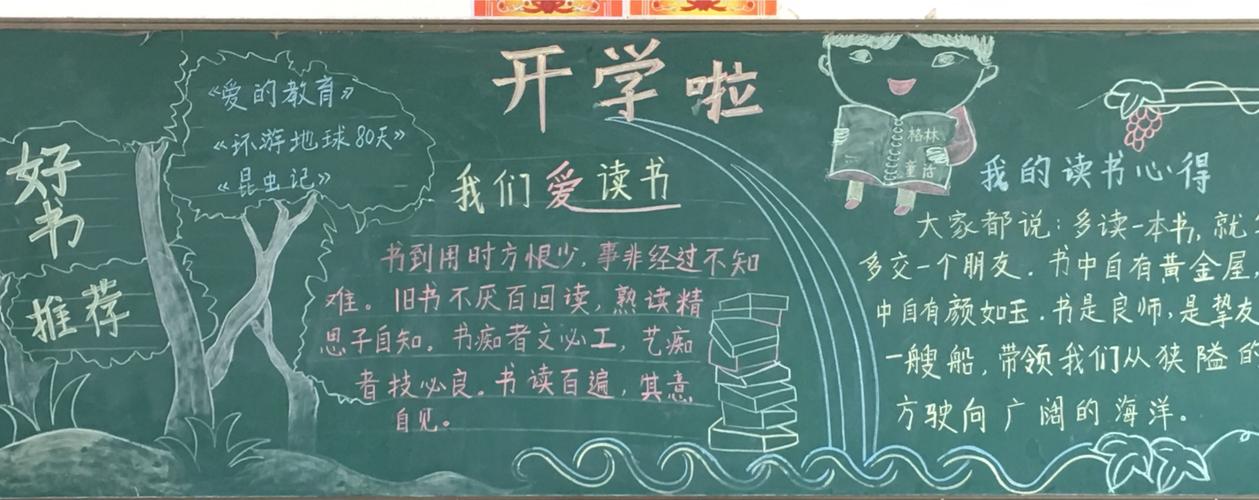 开学啦
好书
推荐
《爱的教育》
《环游地球80天》
《昆虫记》
我们爱读书
书到用时方恨少，事非经过不知
难。旧书不厌百回读，熟读精
思子自知。书痴者文必工，艺痴
者技必良。书读百遍，其意
自见。
格林
童话
我的读书心得
大家都说：多读一本书，就
多交一个朋友．书中自有黄金屋
中自有颜如玉．书是良师，是挚友
一艘船，带领我们从狭隘的
方驶向广阔的海洋．